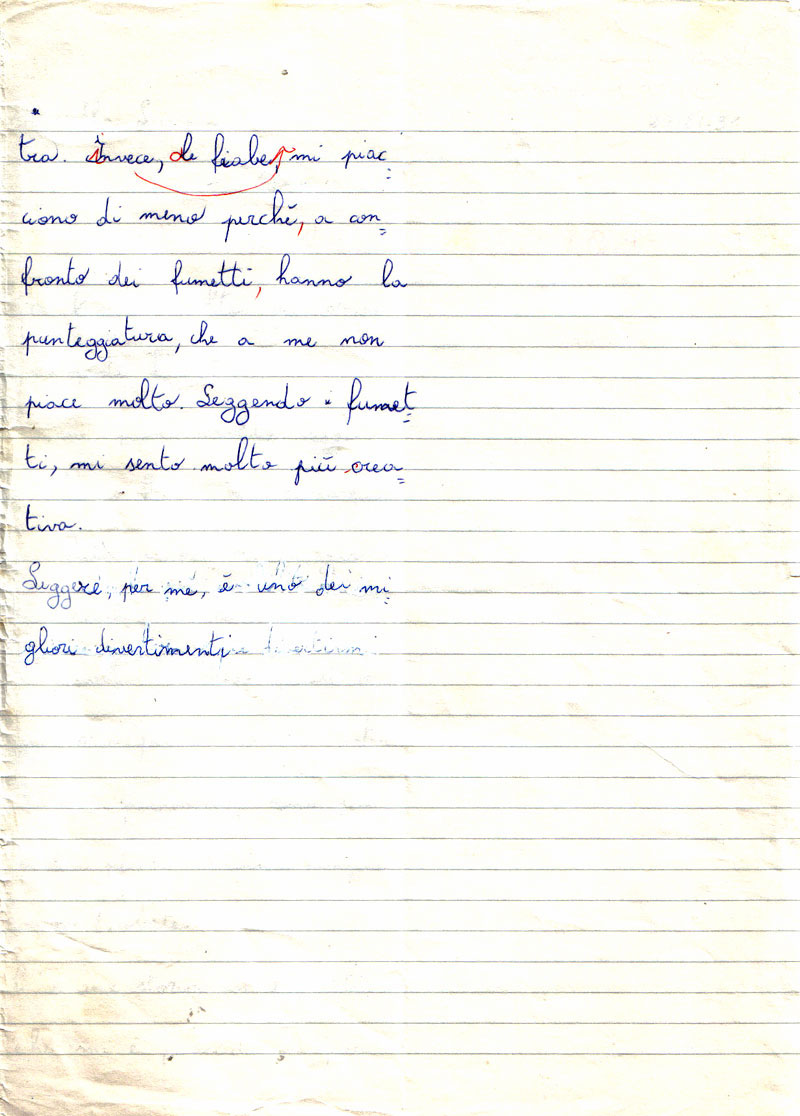 tra. Invece, le fiabe, mi piac=
ciono di meno perché, a con=
fronto dei fumetti, hanno la
punteggiatura, che a me non
piace molto. Leggendo i fumet=
ti, mi sento molto più crea=
tiva.
Leggere, per me, è uno dei mi=
gliori divertimenti